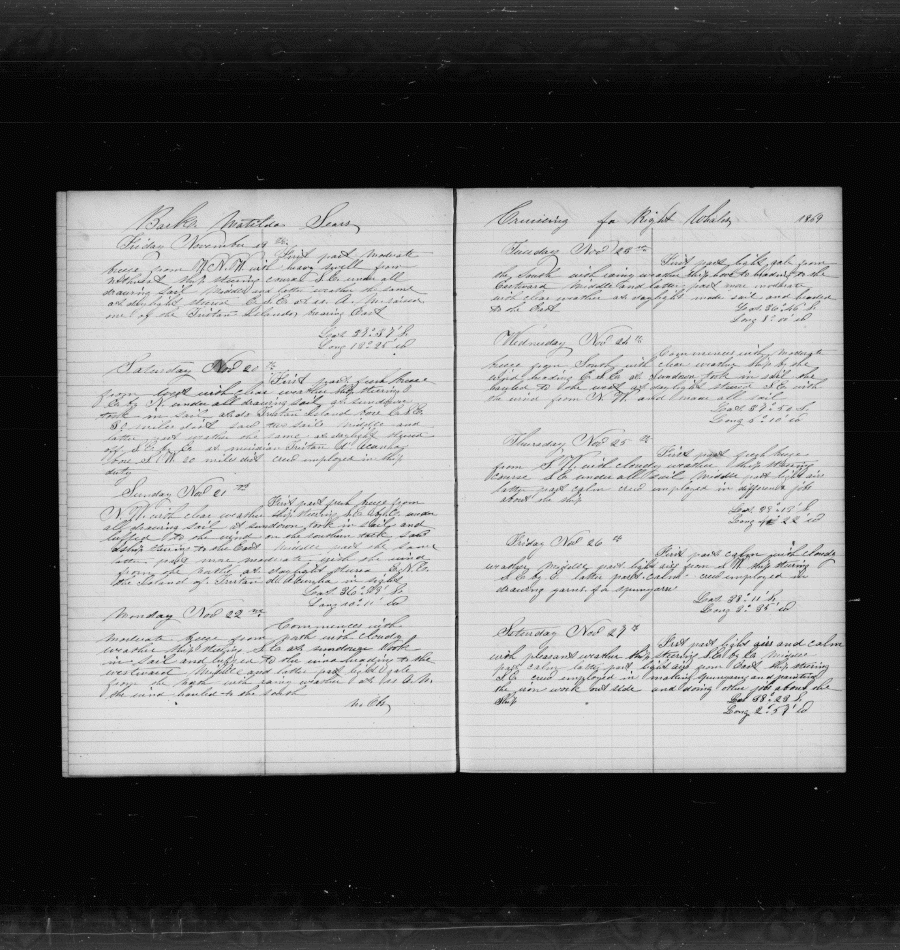 Bark Matilda Sears
Friday November 19 th
First part moderate
breeze from W.N.W with heavy swell from
northeast ship steering course S.E. under all
drawing sail Middle and latter weather the same
at daylight steered E.S.E. at A.
one of the Tristan Islands bearing East
Lat 37°.
Long 13° 25' W
Saturday Nov 20 th
First part fresh breeze
from West with clear weather ship steering
E. by N. under all drawing sail at sundown
took in sail Tristan Island bore E.
miles dist and
latter part weather the same at daylight steered
off S.E. by E. at meridian Tristan d' Acunha
bore S.W. 20 miles dist crew employed in ship
duty
Sunday Nov 21 st
First part fresh breeze from
N.W. with clear weather ship steering S.E. by E. under
all drawing sail at sundown took in sail and
luffed to the wind on the southern tack
ship to the East Middle part the same
latter part more moderate with the wind
from the at daylight steered E.N.E.
the Island of Tristan de Acunha in sight
Lat 36°
Long 10° 11' W
Monday Nov 22 nd
Commences with
moderate breeze from north with cloudy
weather ship steering S.E. at sundown took
in sail and luffed to the wind heading to the
westward Middle and latter part light gale
from the north with rainy weather at A.M.
the wind hauled to the south
N. Ob,
Cruising for Right Whales 1869
Tuesday Nov 23 rd
First part light gale from
the South with rainy weather ship heading to the
Eastward Middle and latter part more moderate
with clear weather at daylight made sail and headed
to the East
Lat 36°.46' S.
Long 8°.00' W
Wednesday Nov 24 th
Commences with moderate
breeze from South with clear weather ship by the
wind heading E.S.E. at sundown took in sail the
hauled to the west at daylight steered S.E. with
the wind from N.W. and made all sail
Lat 37°.50 S.
Long 6°.10' W
Thursday Nov 25 th
First part fresh breeze
from S.W. with cloudy weather ship steering
course S.E. under all sail Middle part light airs
latter part calm crew employed in difference jobs
about the ship
Lat 38°.12' S.
Long 4° 22' W
Friday Nov 26 th
First part calm with cloudy
weather Middle part light airs from S.W. ship steering
S.E. by E. latter part calm crew employed in
drawing yarns for spunyarn
Lat 38°.11' S.
Long 3°.35' W
Saturday Nov 27 th
First part light airs and calm
with pleasant weather ship steering S.E. by E. Middle
part calm latter part light airs from East ship steering
S.E. crew employed in making spunyarn and painting
the iron work out side and doing other jobs about the
ship
Lat 38°.23' S.
Long 2°.57' W